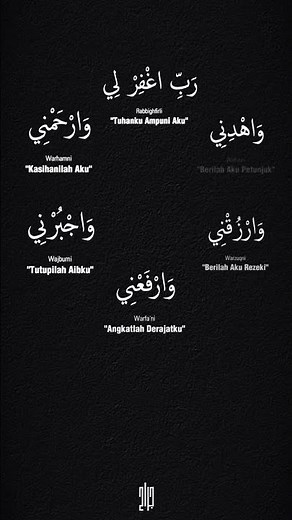 رَبِّ اغْفِرْ لِي
Rabbighfirli
"Tuhanku Ampuni Aku"
وَارْحَمْنِي
Warhamni
"Kasihanilah Aku"
وَاهْدِنِي
"Berilah Aku Petunjuk"
وَاجْبُرْنِي
Wajburni
"Tutupilah Aibku"
وَارْزُقْنِي
Warzuqni
"Berilah Aku Rezeki"
وَارْفَعْنِي
Warfa'ni
"Angkatlah Derajatku"